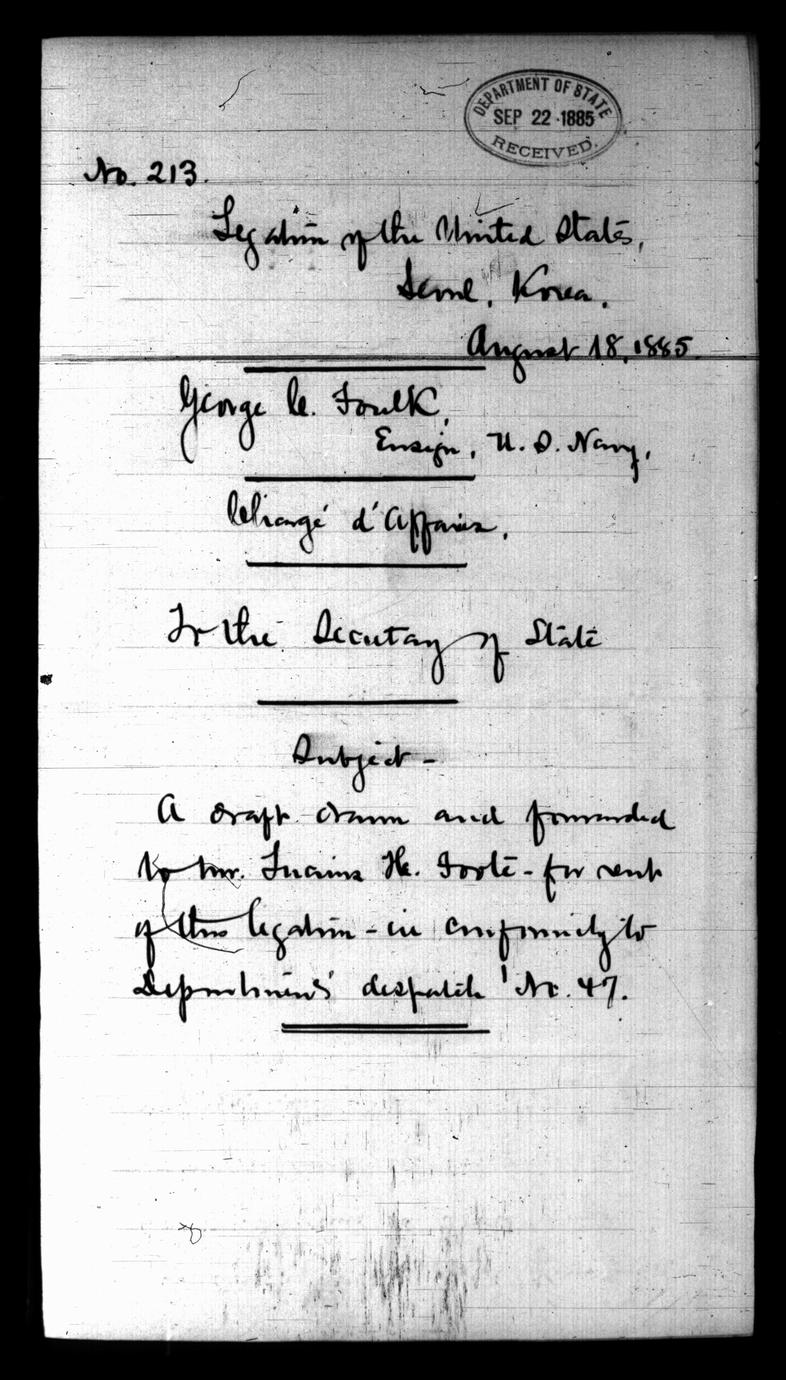 DEPARTMENT OF STATE
SEP 22 1885
RECEIVED.
No. 213.
Legation of the United States,
Seoul, Korea.
August 18, 1885.
George C. Foulk,
Ensign, U. S. Navy,
Chargé d'Affaires,
To the Secretary of State
Subject -
A draft drawn and forwarded
to Mr. Lucius H. Foote - for rent
of this legation - in conformity to
Department's despatch No. 47.